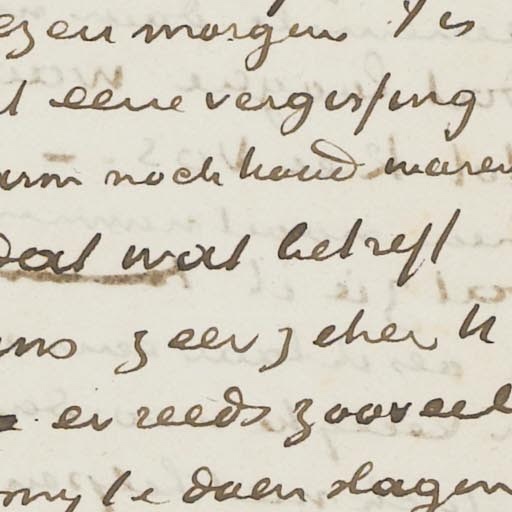 ezen morgen 't is
t eene vergissing
arm noch hand waren
dat wat betreft
ons zeer zeker U
er reeds zooveel
my te doen slagen